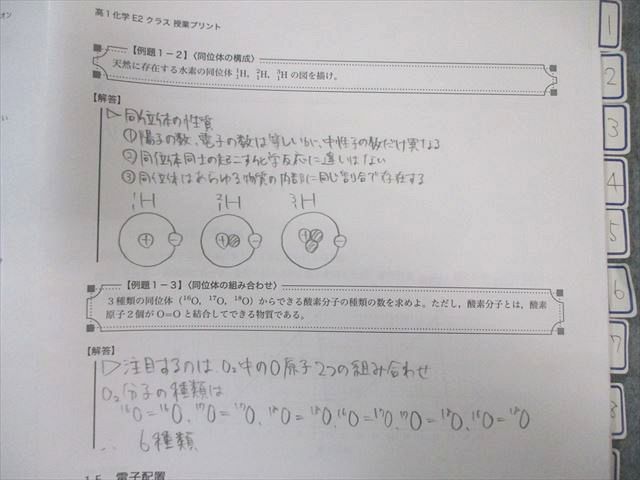 高1化学E2クラス 授業プリント
【例題1-2】〈同位体の構成〉
天然に存在する水素の同位体 ¹₁H, ²₁H, ³₁H の図を描け。
【解答】
▷同位体の性質
①陽子の数、電子の数は等しいが、中性子の数だけ異なる
②同位体同士の起こす化学反応に違いはない
③同位体はあらゆる物質の内部に同じ割合で存在する
¹₁H ²₁H ³₁H
+ − + − + −
【例題1-3】〈同位体の組み合わせ〉
3種類の同位体(¹⁶O, ¹⁷O, ¹⁸O)からできる酸素分子の種類の数を求めよ。ただし,酸素分子とは,酸素
原子2個がO=Oと結合してできる物質である。
【解答】
▷注目するのは、O₂中のO原子2つの組み合わせ
O₂分子の種類は
¹⁶O=¹⁶O、¹⁷O=¹⁷O、¹⁸O=¹⁸O、¹⁶O=¹⁷O、¹⁷O=¹⁸O、¹⁶O=¹⁸O
∴ 6種類
電子配置
1
2
3
4
5
6
7
8